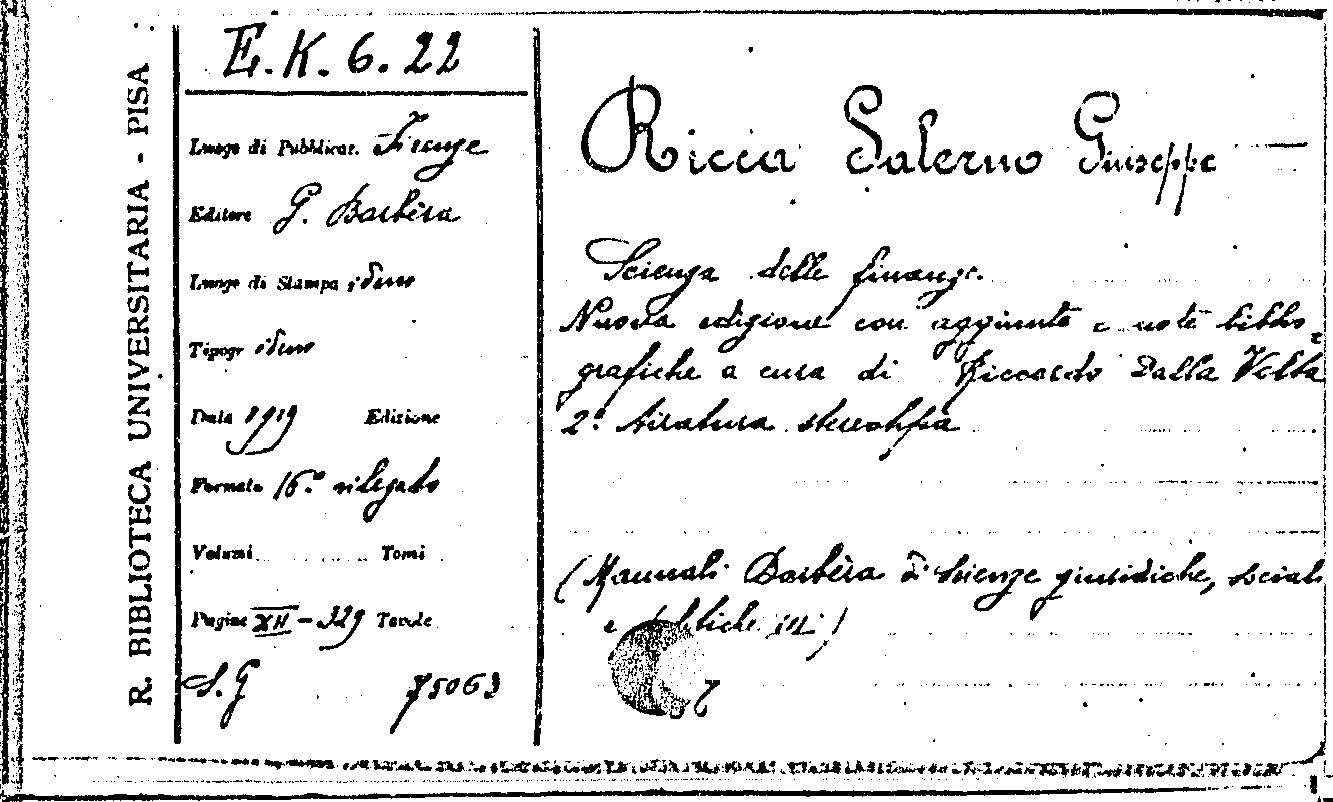 R. BIBLIOTECA UNIVERSITARIA - PISA
E.K. 6. 22
Luogo di Pubblicaz. Firenze
Editore G. Barbèra
Luogo di Stampa idem
Tipogr idem
Data 1919 Edizione
Formato 16.º rilegato
Volumi Tomi
Pagine XII - 329 Tavole
S. G 75063
Ricca Salerno Giuseppe
Scienza delle finanze.
Nuova edizione con aggiunte e note biblio-
grafiche a cura di Riccardo Dalla Volta
2ª tiratura stereotipa
(Manuali Barbèra di Scienze giuridiche, sociali
e politiche III)